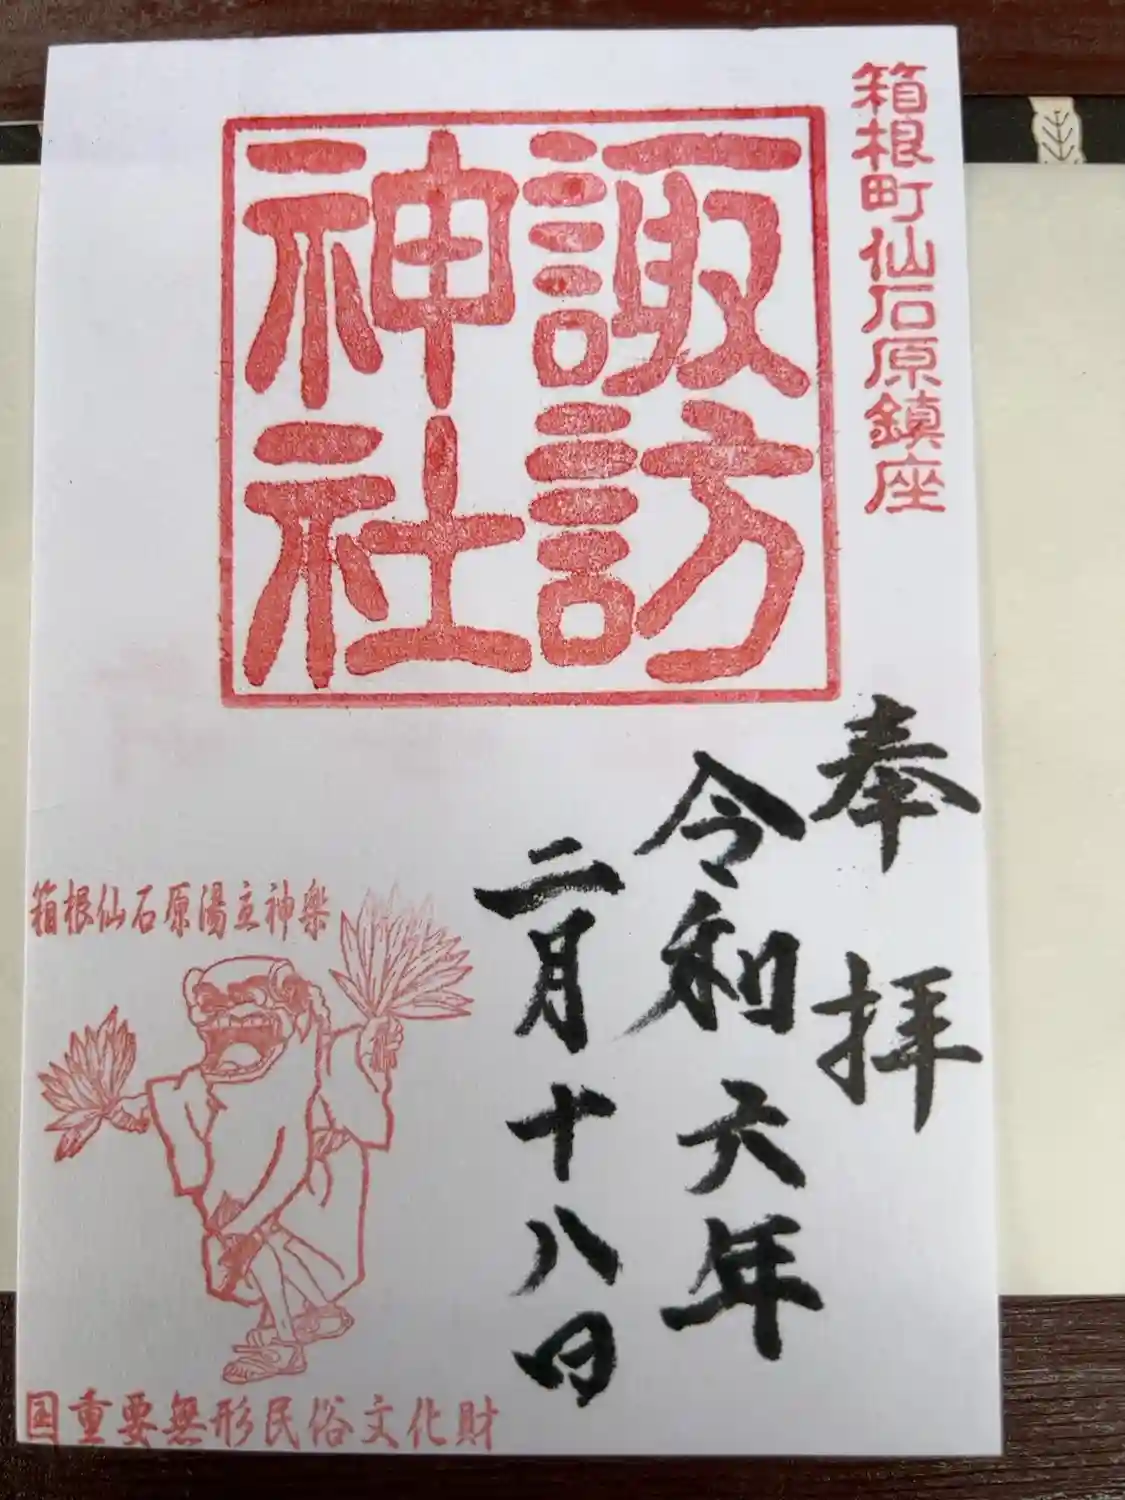 箱根町仙石原鎮座
諏訪
神社
奉拝
令和六年
二月十八日
箱根仙石原湯立神楽
国重要無形民俗文化財